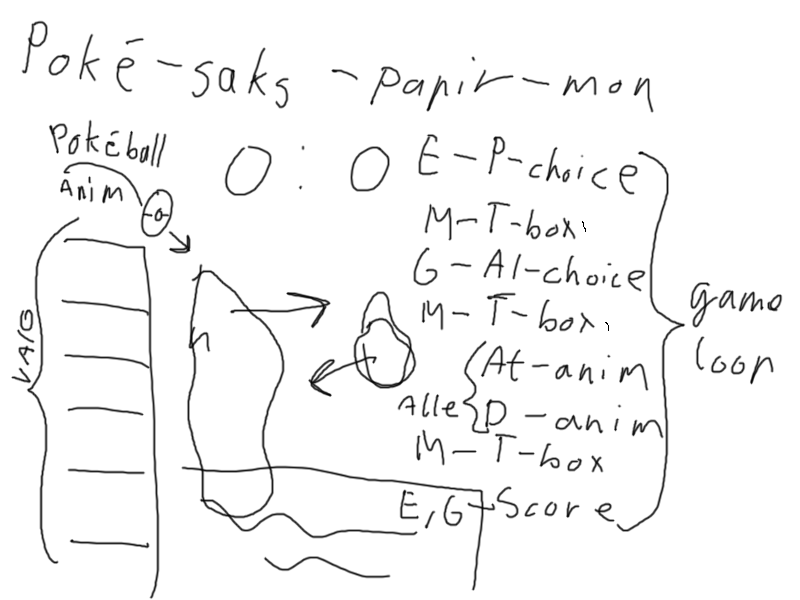 Poké-saks-papir-mon
Pokéball
Anim
0 : 0
VALG
E-P-choice
M-T-box
G-AI-choice
M-T-box
Alle
At-anim
D-anim
M-T-box
E,G-Score
game
loop